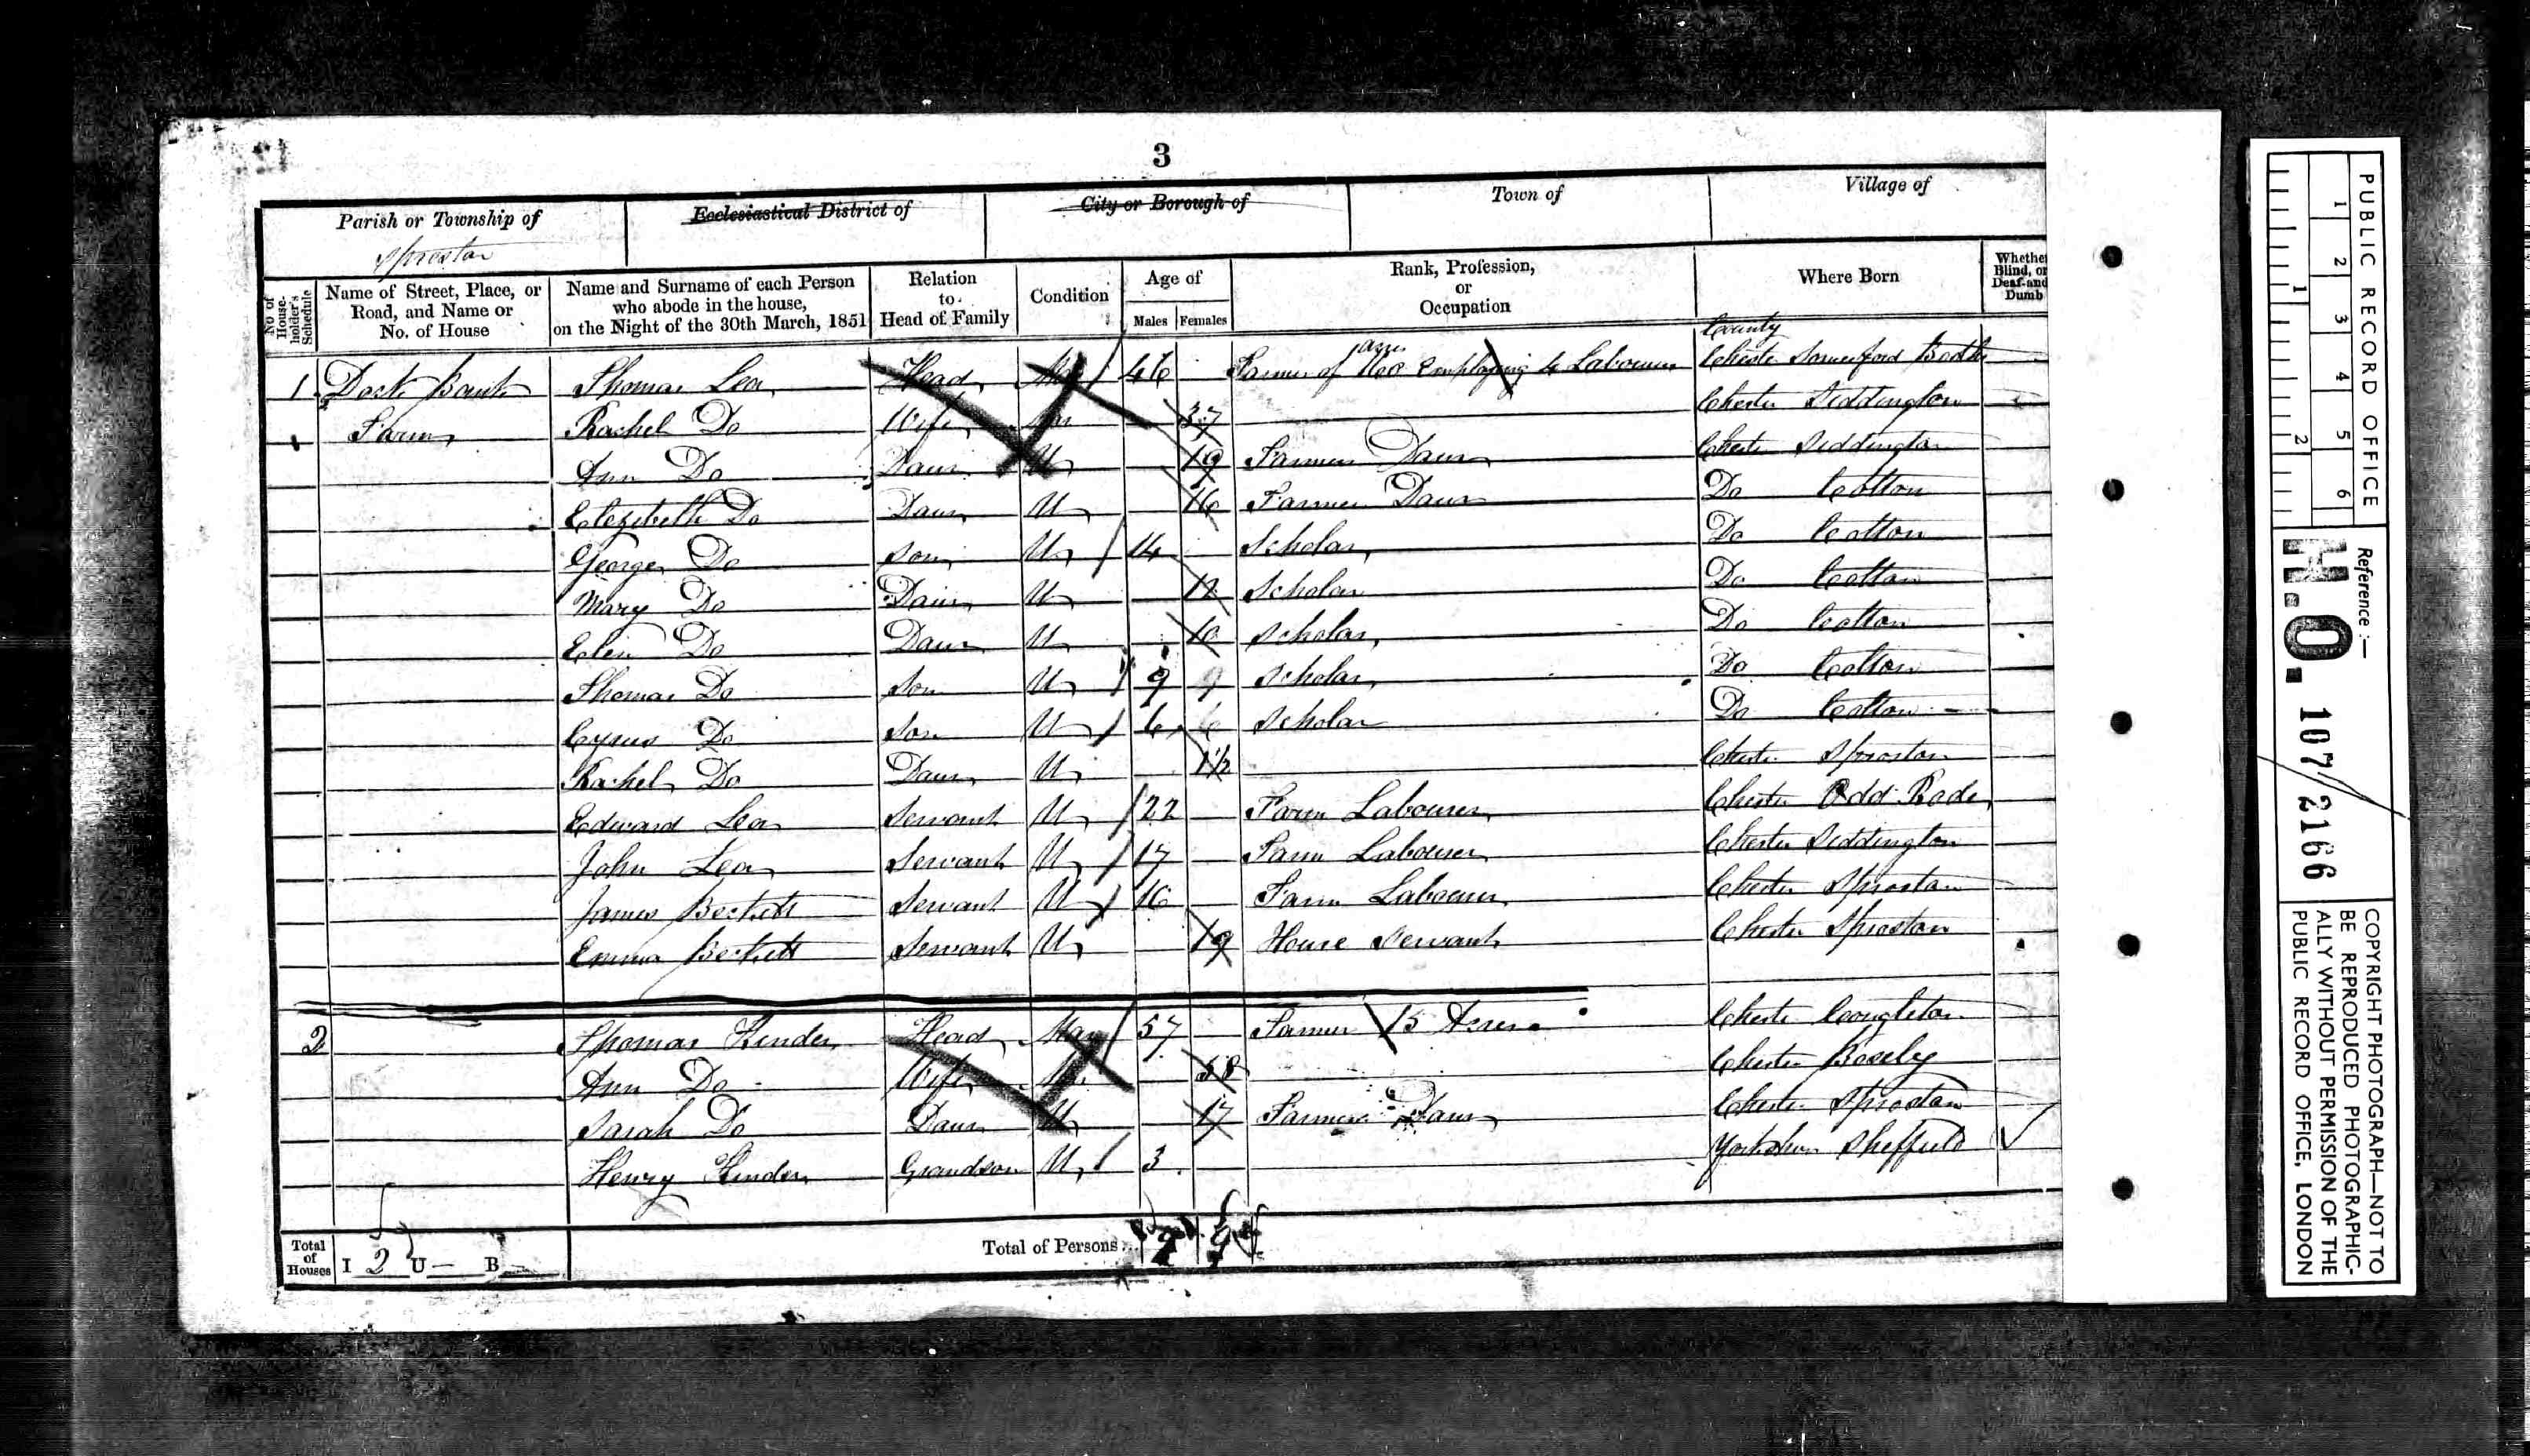 3
Parish or Township of
Sproston
Ecclesiastical District of
City or Borough of
Town of
Village of
No of House-holder's Schedule
Name of Street, Place, or Road, and Name or No. of House
Name and Surname of each Person who abode in the house, on the Night of the 30th March, 1851
Relation to Head of Family
Condition
Age of
Males Females
Rank, Profession, or Occupation
Where Born
Whether Blind, or Deaf-and Dumb
County
1 Dock Bank Thomas Lea Head Mar 46 Farmer of 160 acres Employing 4 Labourers Cheste Somerford Booths
Farm Rachel Do Wife Mar 37 Chester Siddington
Ann Do Daur U 19 Farmers Daur Cheste Siddington
Elezebeth Do Daur U 16 Farmers Daur Do Cotton
George Do Son U 14 Scholar Do Cotton
Mary Do Daur U 12 Scholar Do Cotton
Elen Do Daur U 10 Scholar Do Cotton
Thomas Do Son U 9 Scholar Do Cotton
Cyrus Do Son U 6 Scholar Do Cotton
Rachel Do Daur U 1½ Cheste Sproston
Edward Lea Servant U 22 Farm Labourer Chester Odd Rode
John Lea Servant U 17 Farm Labourer Chester Siddington
James Beckett Servant U 16 Farm Labourer Chester Sproston
Emma Beckett Servant U 19 House Servant Chester Sproston
2 Thomas Kinder Head Mar 57 Farmer 15 Acres Cheste Congleton
Ann Do Wife Mar 58 Chester Bosely
Sarah Do Daur U 17 Farmers Daur Cheste Sproston
Henry Kinder Grandson U 3 Yorkshire Sheffield
Total of Houses I 2 U — B —
Total of Persons... 9 9
PUBLIC RECORD OFFICE
1 2 3 4 5 6
1 2
Reference :—
H.O. 107/2166
COPYRIGHT PHOTOGRAPH—NOT TO
BE REPRODUCED PHOTOGRAPHIC-
ALLY WITHOUT PERMISSION OF THE
PUBLIC RECORD OFFICE, LONDON